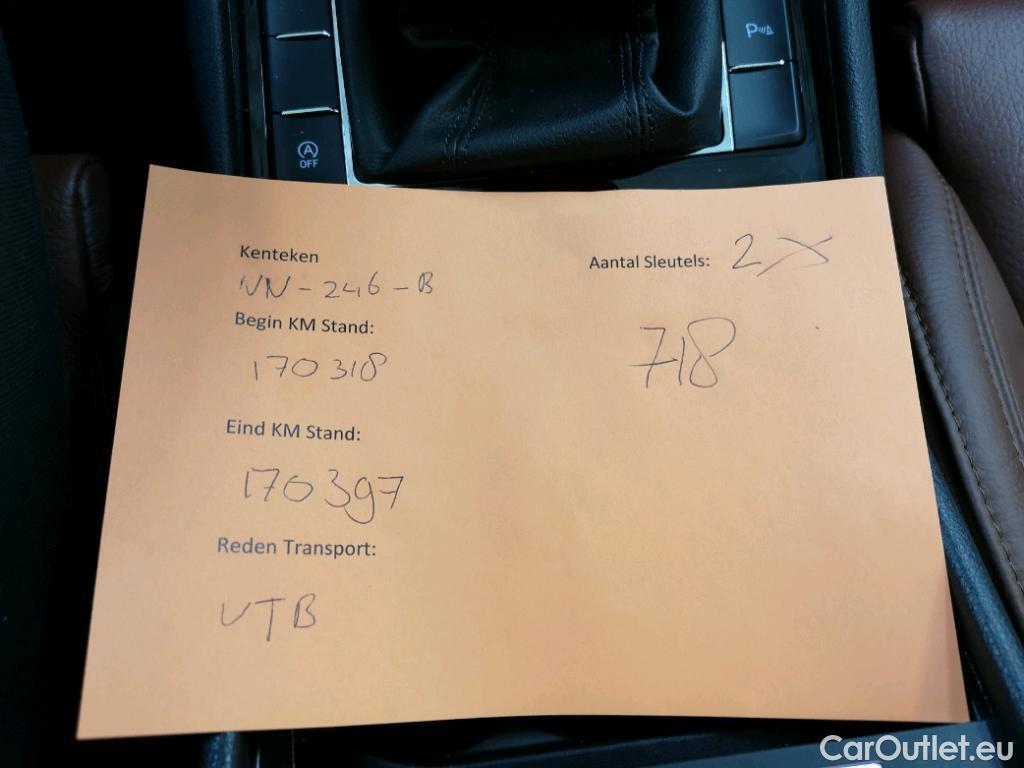 P
A
OFF
Kenteken
NN-246-B
Aantal Sleutels: 2x
Begin KM Stand:
170318
718
Eind KM Stand:
170397
Reden Transport:
VTB
CarOutlet.eu